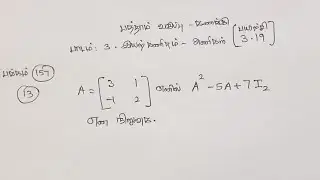 பத்தாம் வகுப்பு - கணக்கு
பாடம்: 3. இயற்கணிதம் - அணிகள் [பயிற்சி 3.19]
பக்கம் 157
13 A = [3 1 -1 2] எனில் A² - 5A + 7I₂
என நிறுவுக.